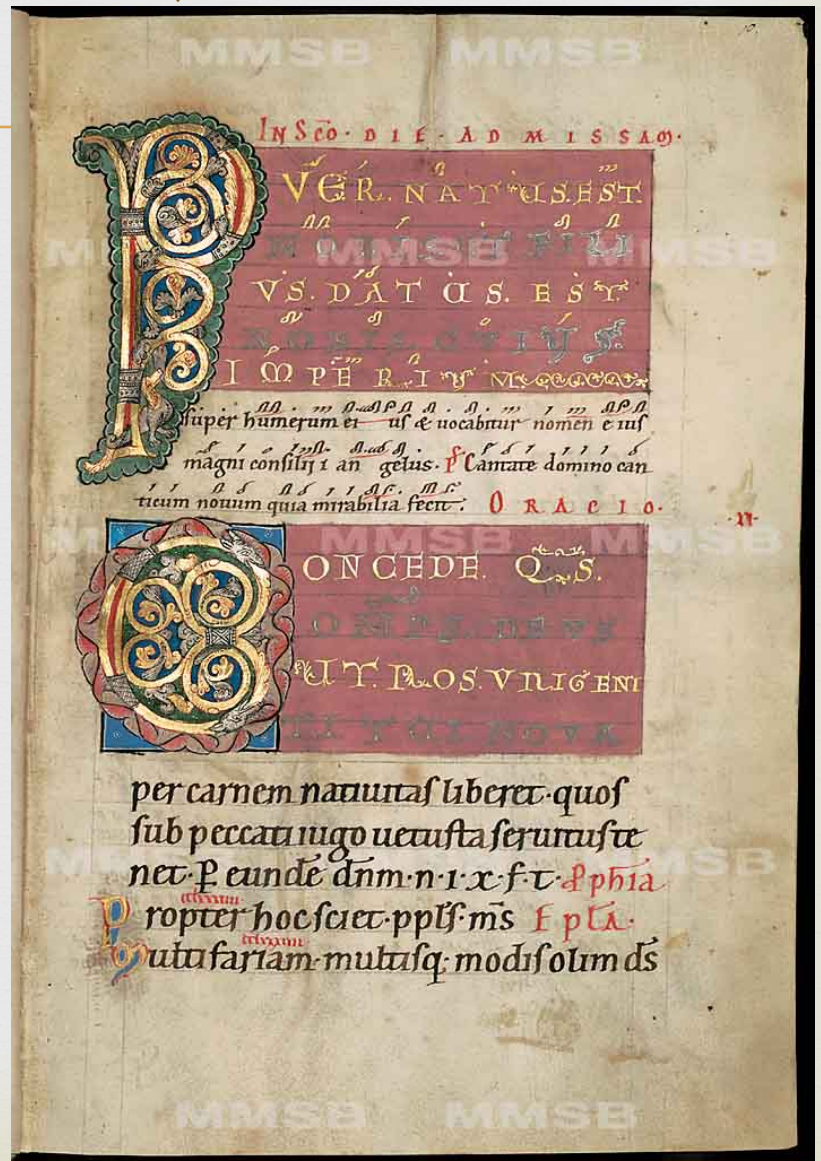 10.
IN SCO · DIE · AD MISSAM ·
PVER. NATUS. EST.
NOBIS ET FILI
VS. DATUS. EST.
NOBIS. CVIUS.
IMPERIVM
super humerum ei us & uocabitur nomen e ius
magni consilii i an gelus. Ps Cantate domino can
ticum nouum quia mirabilia fecit. ORACIO.
CONCEDE. QS.
OMPS. DEVS
UT. NOS. VNIGENI
TI TUI NOVA
per carnem natiuitas liberet · quos
sub peccati iugo uetusta seruitus te
net · P eundē dnm · n · i · x · f · t · Pphia
Propter hoc sciet · ppls · ms Epla ·
Multifariam · multisq; modis olim ds
MMSB MMSB
MMSB MMSB
MMSB MMSB
MMSB
MMSB MMSB